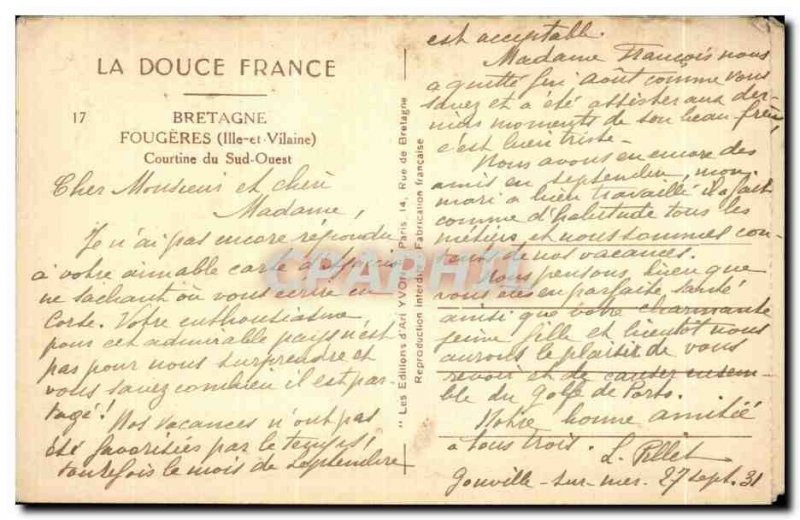 LA DOUCE FRANCE
17
BRETAGNE
FOUGÈRES (Ille-et-Vilaine)
Courtine du Sud-Ouest
Cher Monsieur et chère
Madame,
Je n'ai pas encore répondu
à votre aimable carte d'Ajaccio
ne sachant où vous écrire en
Corse. Votre enthousiasme
pour cet admirable pays n'est
pas pour nous surprendre et
vous savez combien il est par-
tagé!
Nos vacances n'ont pas
été favorisées par le temps,
toutefois le mois de septembre
"Les Editions d'Art YVON", Paris, 14, Rue de Bretagne
Reproduction interdite. Fabrication française
est acceptable.
Madame François nous
a quitté fin Août comme vous
savez et a été assister aux der-
niers moments de son beau frère,
c'est bien triste.
Nous avons eu encore des
amis en septembre, mon
mari a bien travaillé il a fait
comme d'habitude tous les
métiers et nous sommes con-
tents de nos vacances.
Nous pensons bien que
vous êtes en parfaite santé
ainsi que votre charmante
jeune fille et bientôt nous
aurons le plaisir de vous
revoir et de causer ensem-
ble du Golfe de Porto.
Notre bonne amitié
à tous trois.
L. Pillet
Gonville-sur-mer. 27 sept. 31
CPAPHIL